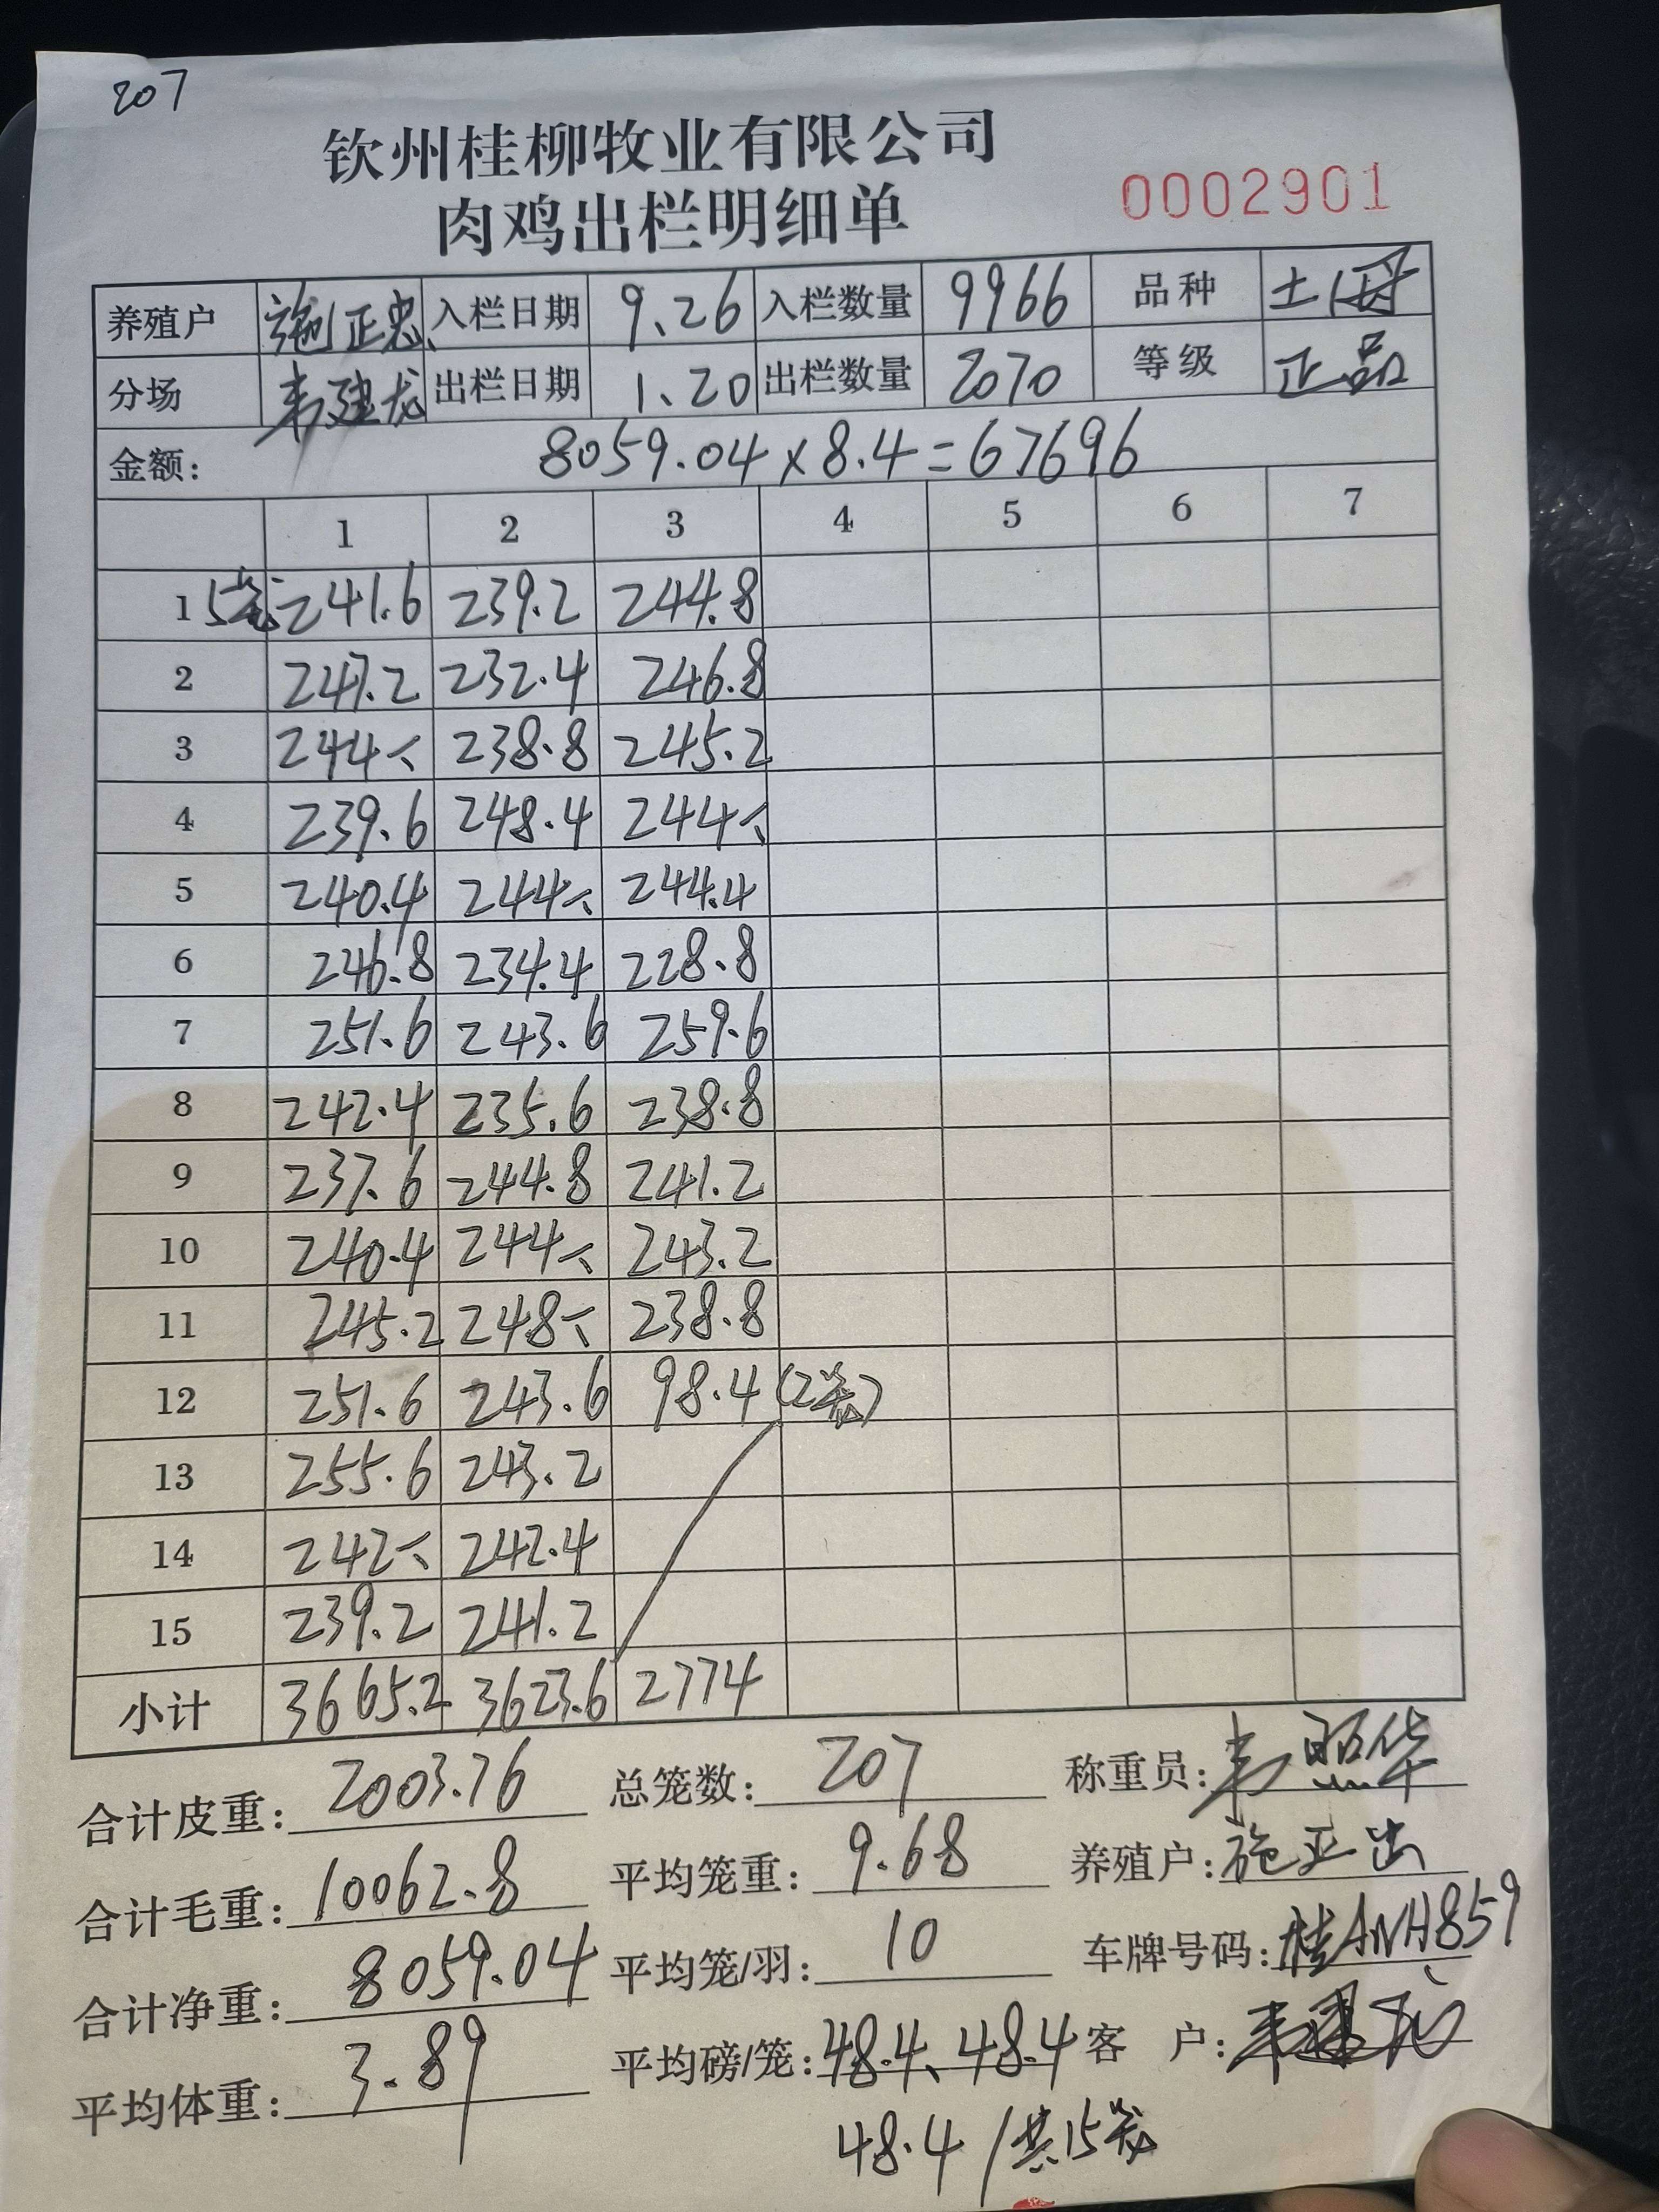 207
钦州桂柳牧业有限公司
肉鸡出栏明细单
0002901
养殖户 施正忠 入栏日期 9.26 入栏数量 9966 品种 土(母
分场 韦建龙 出栏日期 1.20 出栏数量 2070 等级 正品
金额: 8059.04×8.4=67696
1 2 3 4 5 6 7
1 5笼 241.6 239.2 244.8
2 247.2 232.4 246.8
3 244 238.8 245.2
4 239.6 248.4 244
5 240.4 244 244.4
6 246.8 234.4 228.8
7 251.6 243.6 259.6
8 242.4 235.6 238.8
9 237.6 244.8 241.2
10 240.4 244 243.2
11 245.2 248 238.8
12 251.6 243.6 98.4 (2笼)
13 255.6 243.2
14 242 242.4
15 239.2 241.2
小计 3665.2 3623.6 2774
合计皮重: 2003.76 总笼数: 207 称重员: 韦照华
合计毛重: 10062.8 平均笼重: 9.68 养殖户: 施正忠
合计净重: 8059.04 平均笼/羽: 10 车牌号码: 桂ANH859
平均体重: 3.89 平均磅/笼: 48.4、48.4 客 户: 韦建龙
48.4 /共15笼